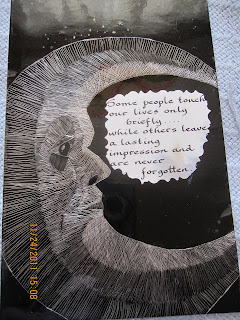 Some people touch
our lives only
briefly....
while others leave
a lasting
impression and
are never
forgotten
11/24/2011 15:08